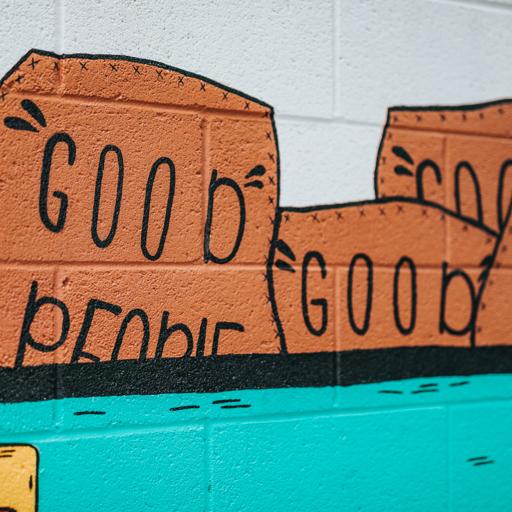 GOOD
PEOPLE
GOOD
GOO